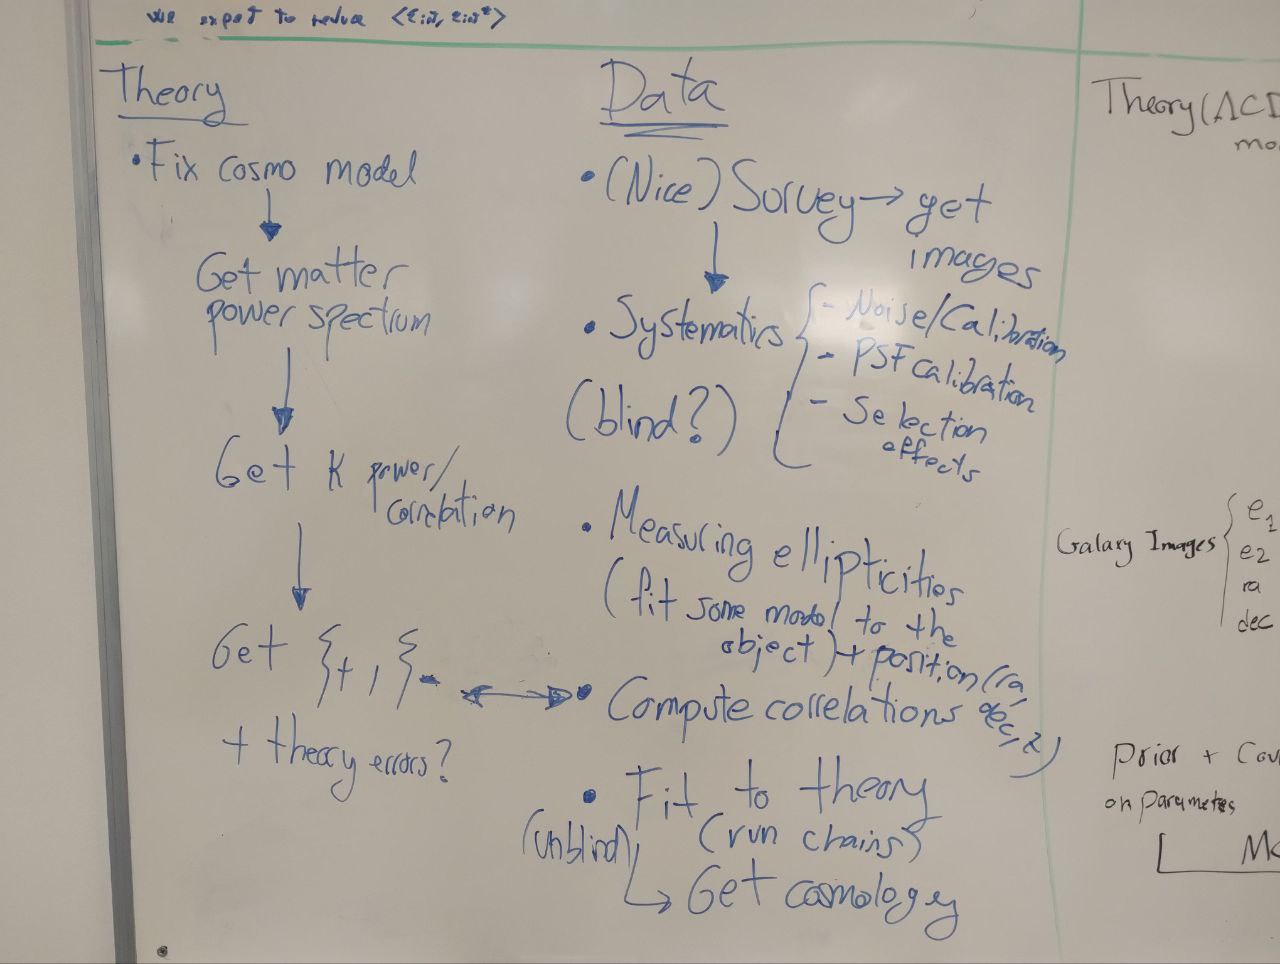 we expect to reduce
Theory
• Fix cosmo model
Get matter
power spectrum
Get K power/
correlation
Get ξ+, ξ-
+ theory errors?
Data
• (Nice) Survey → get
images
• Systematics { - Noise/Calibration
- PSF calibration
- Selection
effects
(blind?)
• Measuring ellipticities
(fit some model to the
object) + position (ra,
dec, z)
• Compute correlations
• Fit to theory
(run chains)
(unblind)
↳ Get cosmologey
Theory (ΛCD
mo
Galary Images { e1
e2
ra
dec
Prior + Cov
on parametes
MC